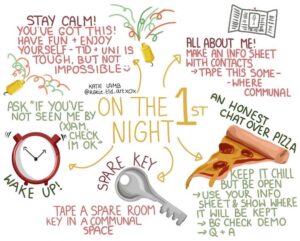 STAY CALM!
YOU'VE GOT THIS!
HAVE FUN + ENJOY
YOURSELF - T1D + UNI IS
TOUGH, BUT NOT
IMPOSSIBLE
ALL ABOUT ME!
MAKE AN INFO SHEET
WITH CONTACTS
→ TAPE THIS SOME-
-WHERE
COMMUNAL
KATIE LAMB
ASK "IF YOU'VE
NOT SEEN ME BY
(X)AM,
CHECK
I'M OK"
ON THE 1ST
NIGHT
WAKE UP!
SPARE KEY
TAPE A SPARE ROOM
KEY IN A COMMUNAL
SPACE
AN HONEST
CHAT OVER PIZZA
KEEP IT CHILL
BUT BE OPEN
→ USE YOUR INFO
SHEET & SHOW WHERE
IT WILL BE KEPT
→ BG CHECK DEMO
→ Q + A